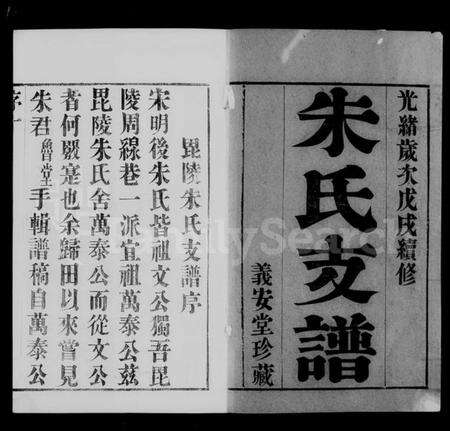 光緒歲次戊戌續修
朱氏支譜
義安堂珍藏
毘陵朱氏支譜序
宋明後朱氏皆祖文公獨吾毘
陵周線巷一派宣祖萬泰公茲
毘陵朱氏舍萬泰公而從文公
者何歟寔也余歸田以來嘗見
朱君魯堂手輯譜稿自萬泰公
序一
FamilySearch